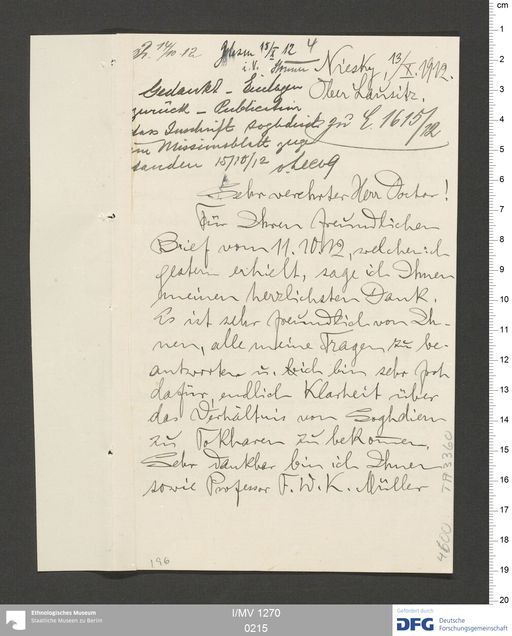 Pr. 14/10 12
Gelesen 15/X 12 4
i. V.
Niesky, 13/X. 1912.
Ober Lausitz.
Gedankt – Einlagen
zurück – Publication
dass Inschrift soghdisch
im Missionsblatt zuge
sanden 15/10/12 v. Lecoq
zu E. 1615/12
Sehr verehrter Herr Doctor!
Für Ihren freundlichen
Brief vom 11. 10. 12, welchen ich
gestern erhielt, sage ich Ihnen
meinen herzlichsten Dank.
Es ist sehr freundlich von Ih-
nen, alle meine Fragen zu be-
antworten u. ich bin sehr froh
dafür, endlich Klarheit über
das Verhältnis von Soghdiern
zu Tokharen zu bekommen.
Sehr dankbar bin ich Ihnen
sowie Professor F. W. K. Müller
196
4600 TA 3360
Ethnologisches Museum
Staatliche Museen zu Berlin
I/MV 1270
0215
Gefördert durch
DFG Deutsche
Forschungsgemeinschaft
cm
1
2
3
4
5
6
7
8
9
10
11
12
13
14
15
16
17
18
19
20